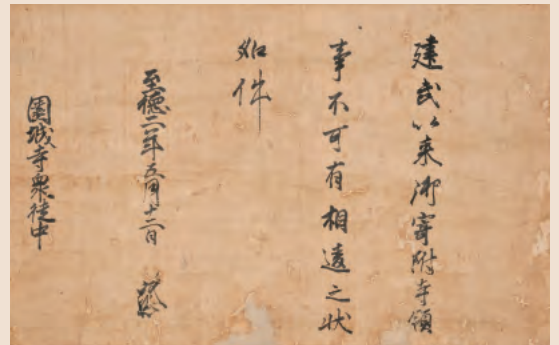 建武以来御寄附寺領
事不可有相違之状
如件
至徳二年五月十二日
園城寺衆徒中